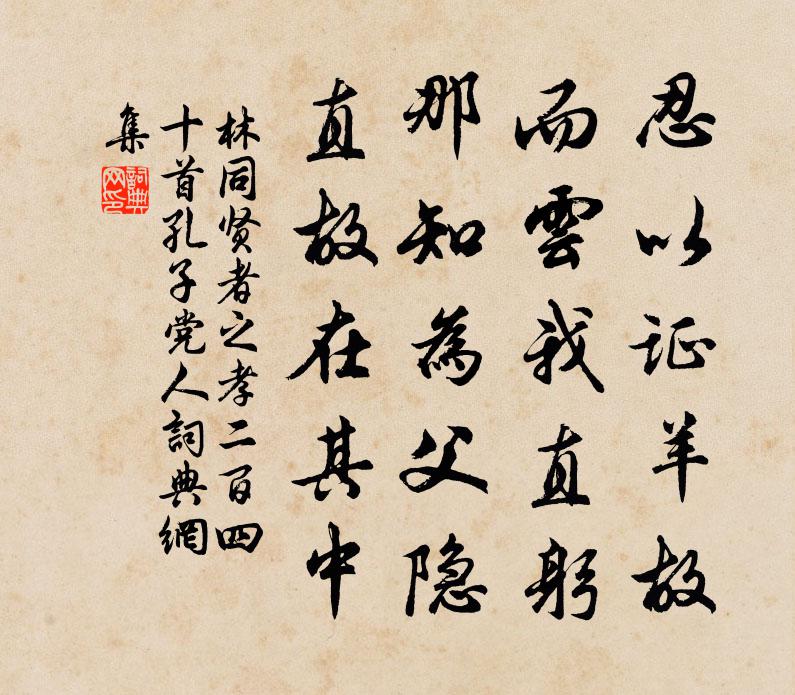 忍以证羊故
而雲我直躬
那知為父隐
直故在其中
林同贤者之孝二百四
十首孔子党人詞典網
集
詞典網印